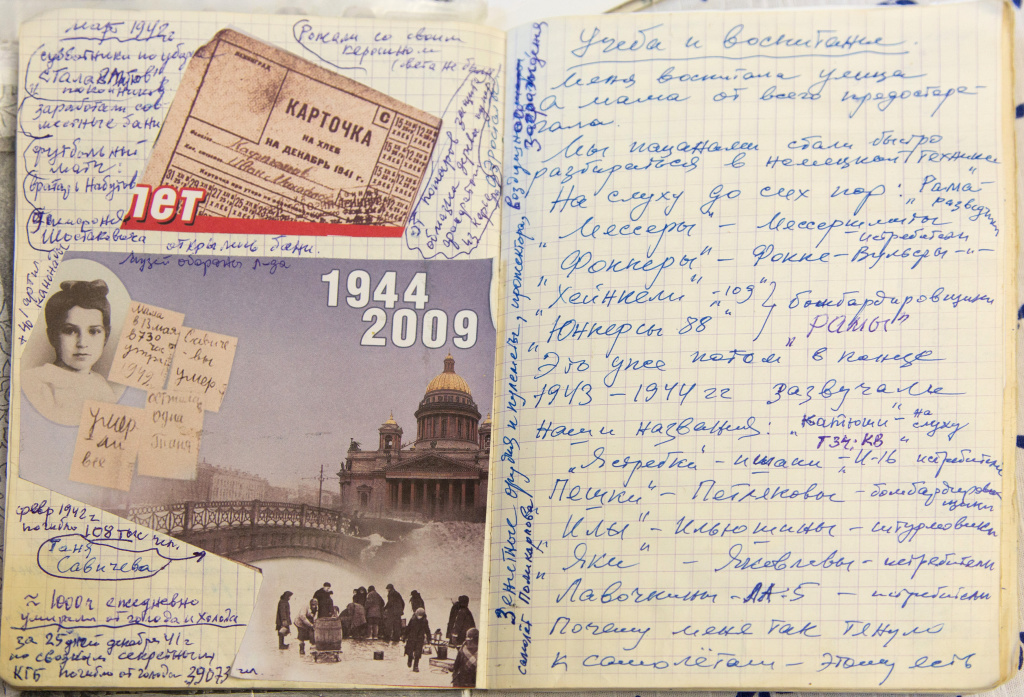 март 1942г.
субботники по уборке
"Талантов"
и покойников
заработали сов-
местные бани
футбольный
матч:
вратарь Набутов
Шостаковича
открыли бани.
Музей обороны Л-да
Рожали со своим
керосином
(света не было
ЛЕНИНГРАД
КАРТОЧКА
С
НА ХЛЕБ
НА ДЕКАБРЬ 1941 г.
лет
От пожаров защита
1944
2009
Мама
в 13 мая
в 7 30
час
утра
1942
Савичевы
умер
умерли
все
осталась
одна
Таня
февр 1942 г
погибло 108 тыс чел.
Таня
Савичева
≈ 1000 ч ежедневно
умирали от голода и холода
за 25 дней декабря 41 г
по сводкам секретным
КГБ погибло от голода 39073 чел.
Зенитные орудия и пулеметы, прожектора, воздушного
заграждения
самолёт Поликарпова
Учеба и воспитание.
Меня воспитала улица
А мама от всего предостере-
гала.
Мы пацанами стали быстро
разбираться в немецкой технике
На слуху до сих пор: "Рама"-
разведчик
"Мессеры" - Мессершмиты
истребители
"Фоккеры" - Фокке-Вульфы -"-
"Хейнкели" -109" } бомбардировщики
"Юнкерсы 88" "РАМЫ"
Это уже потом в конце
1943 - 1944 гг зазвучали
наши названия: "катюши" на слуху
Т34. КВ "
"Ястребки" - ишаки - "И-16 истребители
Пешки" - Петляковы - бомбардировщики
"Илы" - Ильюшины - штурмовики
"Яки" - Яковлевы - истребители
Лавочкины - ЛА-5 - истребители
Почему меня так тянуло
к самолётам - этому есть